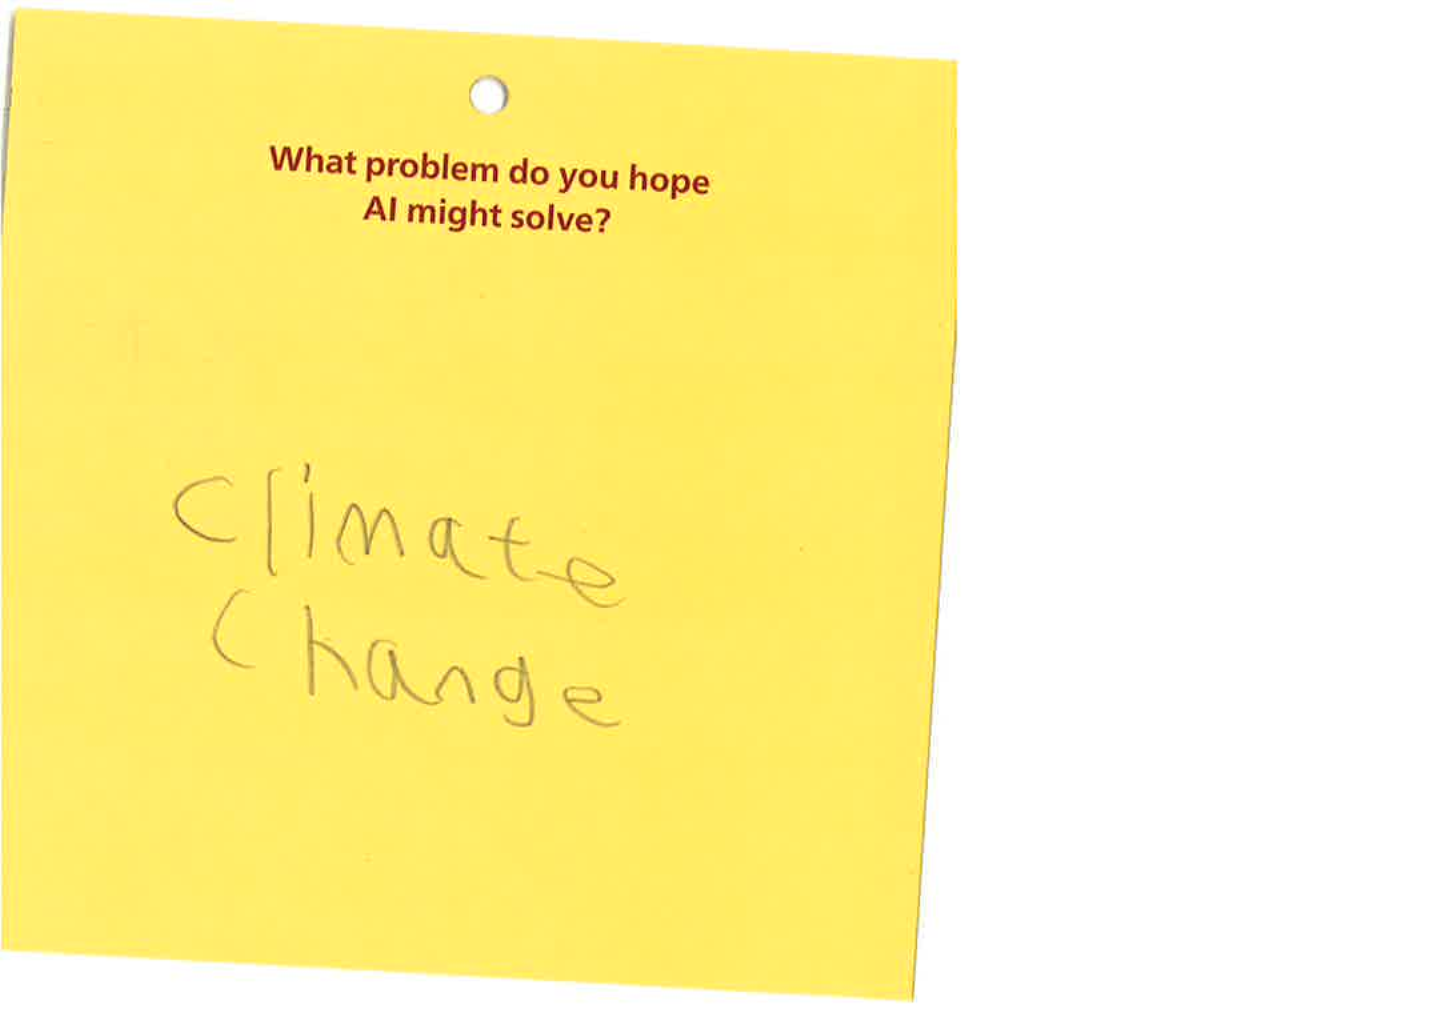 What problem do you hope
AI might solve?
Climate
Change